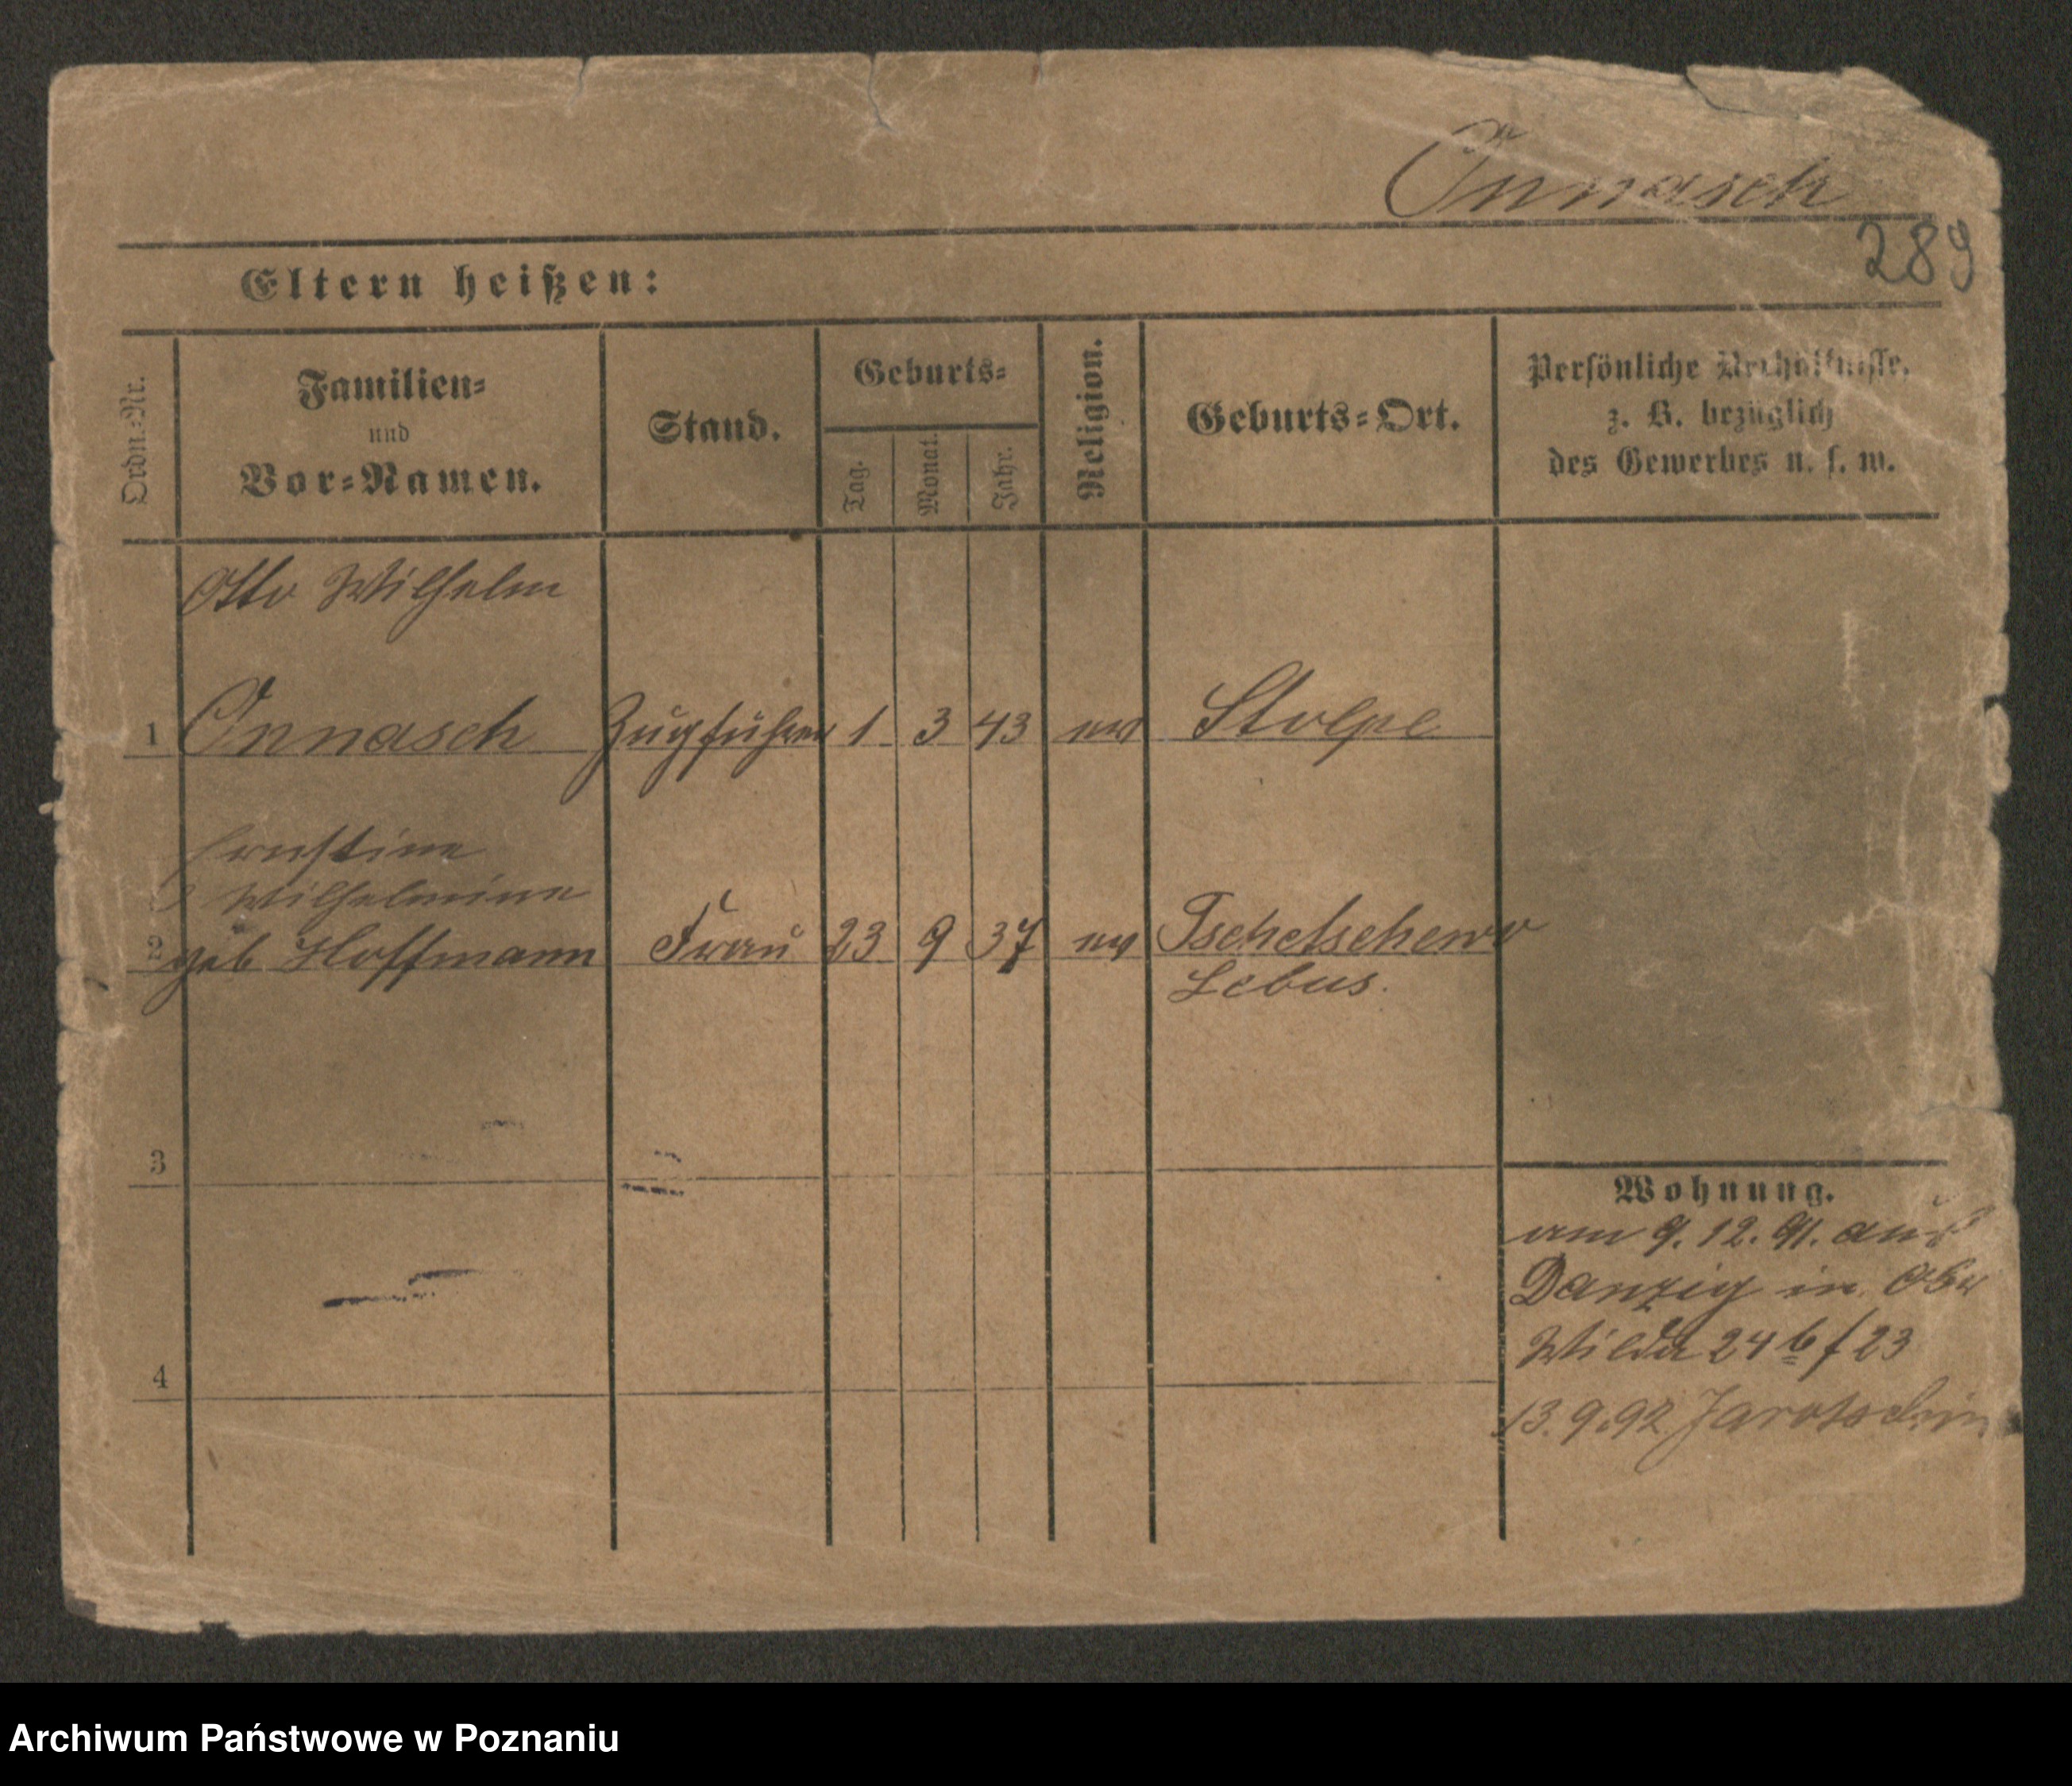 Onnasch
289
Eltern heißen:
Ordn.-Nr.
Familien-
und
Vor-Namen.
Stand.
Geburts-
Tag.
Monat.
Jahr.
Religion.
Geburts-Ort.
Persönliche Verhältnisse,
z. B. bezüglich
des Gewerbes u. s. w.
Otto Wilhelm
1 Onnasch Zugführer 1 3 43 ev Stolpe
Ernstine
Wilhelmine
2 geb Hoffmann Frau 23 9 37 ev Tschetschenow
Lebus.
3
Wohnung.
am 9. 12. 91. aus
Danzig in Ober
Wilda 24 b / 23
4
13.9.92 Jarotschin
Archiwum Państwowe w Poznaniu